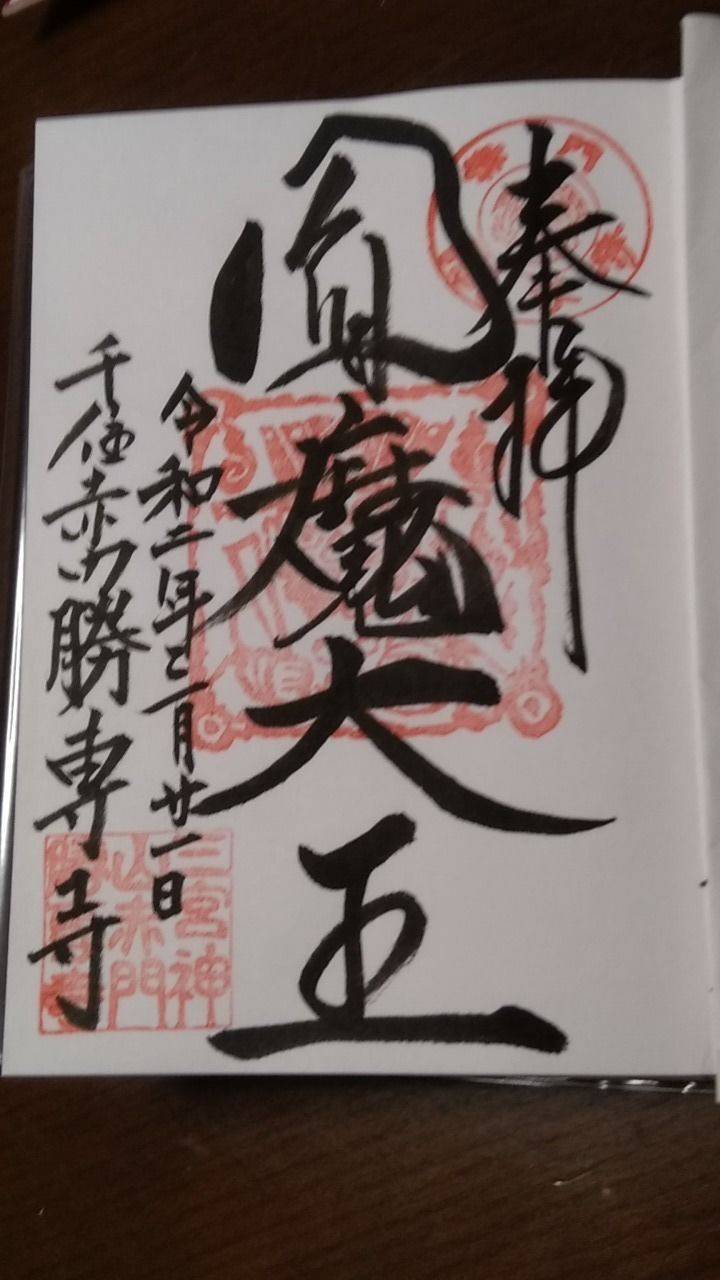 奉拝
閻魔大王
令和二年三月廿一日
千住赤門勝専寺
三宮神
山赤門
勝専寺